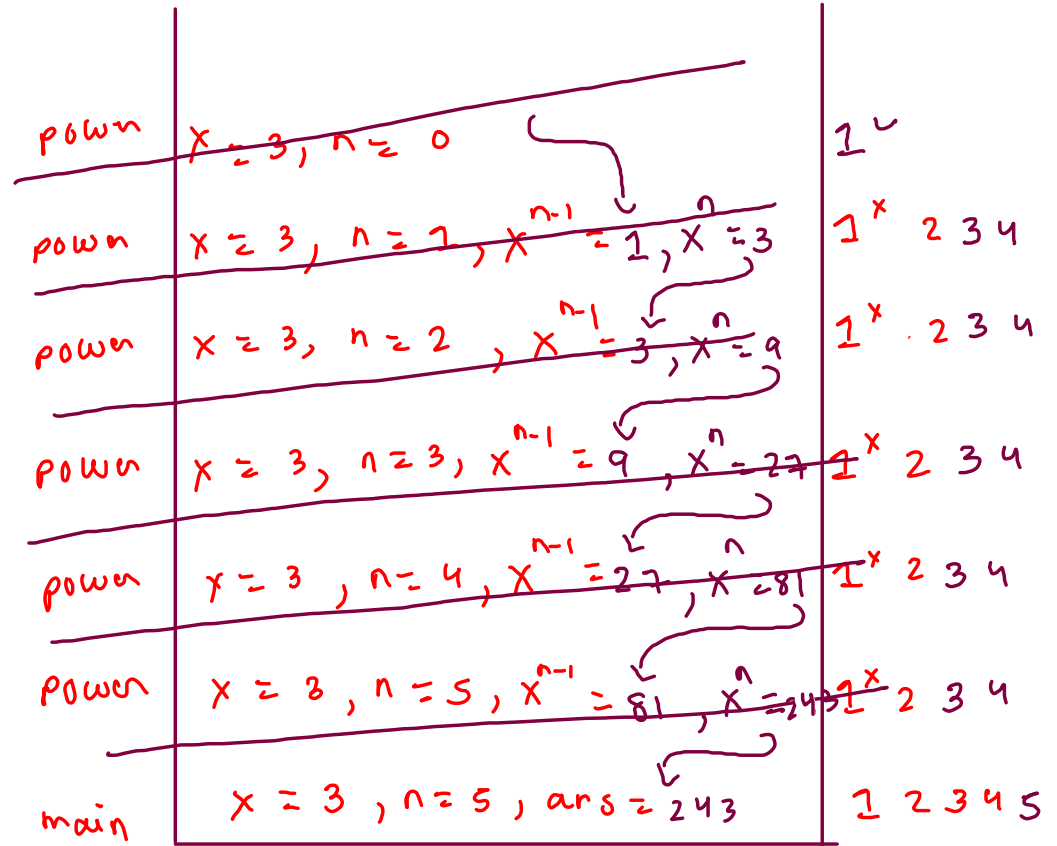 power x = 3, n = 0 1 ✓
power x = 3, n = 1, xⁿ⁻¹ = 1, xⁿ = 3 1ˣ 2 3 4
power x = 3, n = 2, xⁿ⁻¹ = 3, xⁿ = 9 1ˣ 2 3 4
power x = 3, n = 3, xⁿ⁻¹ = 9, xⁿ = 27 1ˣ 2 3 4
power x = 3, n = 4, xⁿ⁻¹ = 27, xⁿ = 81 1ˣ 2 3 4
power x = 3, n = 5, xⁿ⁻¹ = 81, xⁿ = 243 1ˣ 2 3 4
main x = 3, n = 5, ans = 243 1 2 3 4 5